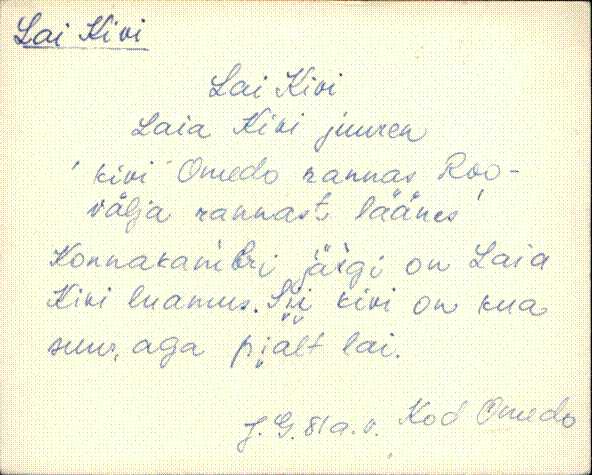 Lai Kivi
Lai Kivi
Laia Kivi juuren
'kivi Omedo rannas Roo-
välja rannast läänes'
Konnakambri järgi on Laia
Kivi luamus. Sii kivi on kua
suur, aga pialt lai.
J. G. 81 a. v. Kod Omedo